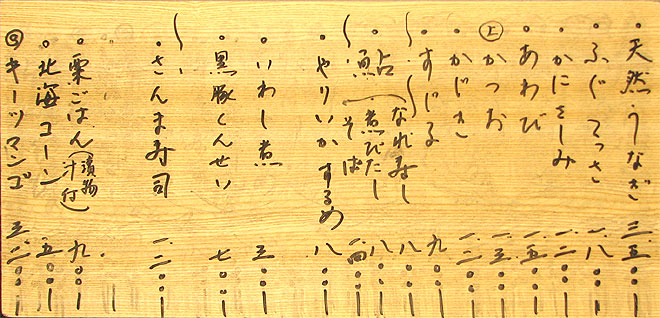 ・天然うなぎ 三、五〇〇ー
・ふぐてっさ 一、八〇〇ー
・かにさしみ 一、二〇〇ー
・あわび 一、五〇〇ー
㊤かつお 一、三〇〇ー
・かじき 一、二〇〇ー
・すじこ 九〇〇ー
・鮎(なれずし 八〇〇ー
煮びたし 八〇〇ー
そば 一、四〇〇ー
・やりいかするめ 八〇〇ー
・いわし煮 五〇〇ー
・黒豚くんせい 七〇〇ー
・さんま寿司 一、二〇〇ー
・栗ごはん(漬物汁付) 九〇〇ー
・北海コーン 五〇〇ー
キーツマンゴ 三、二〇〇ー